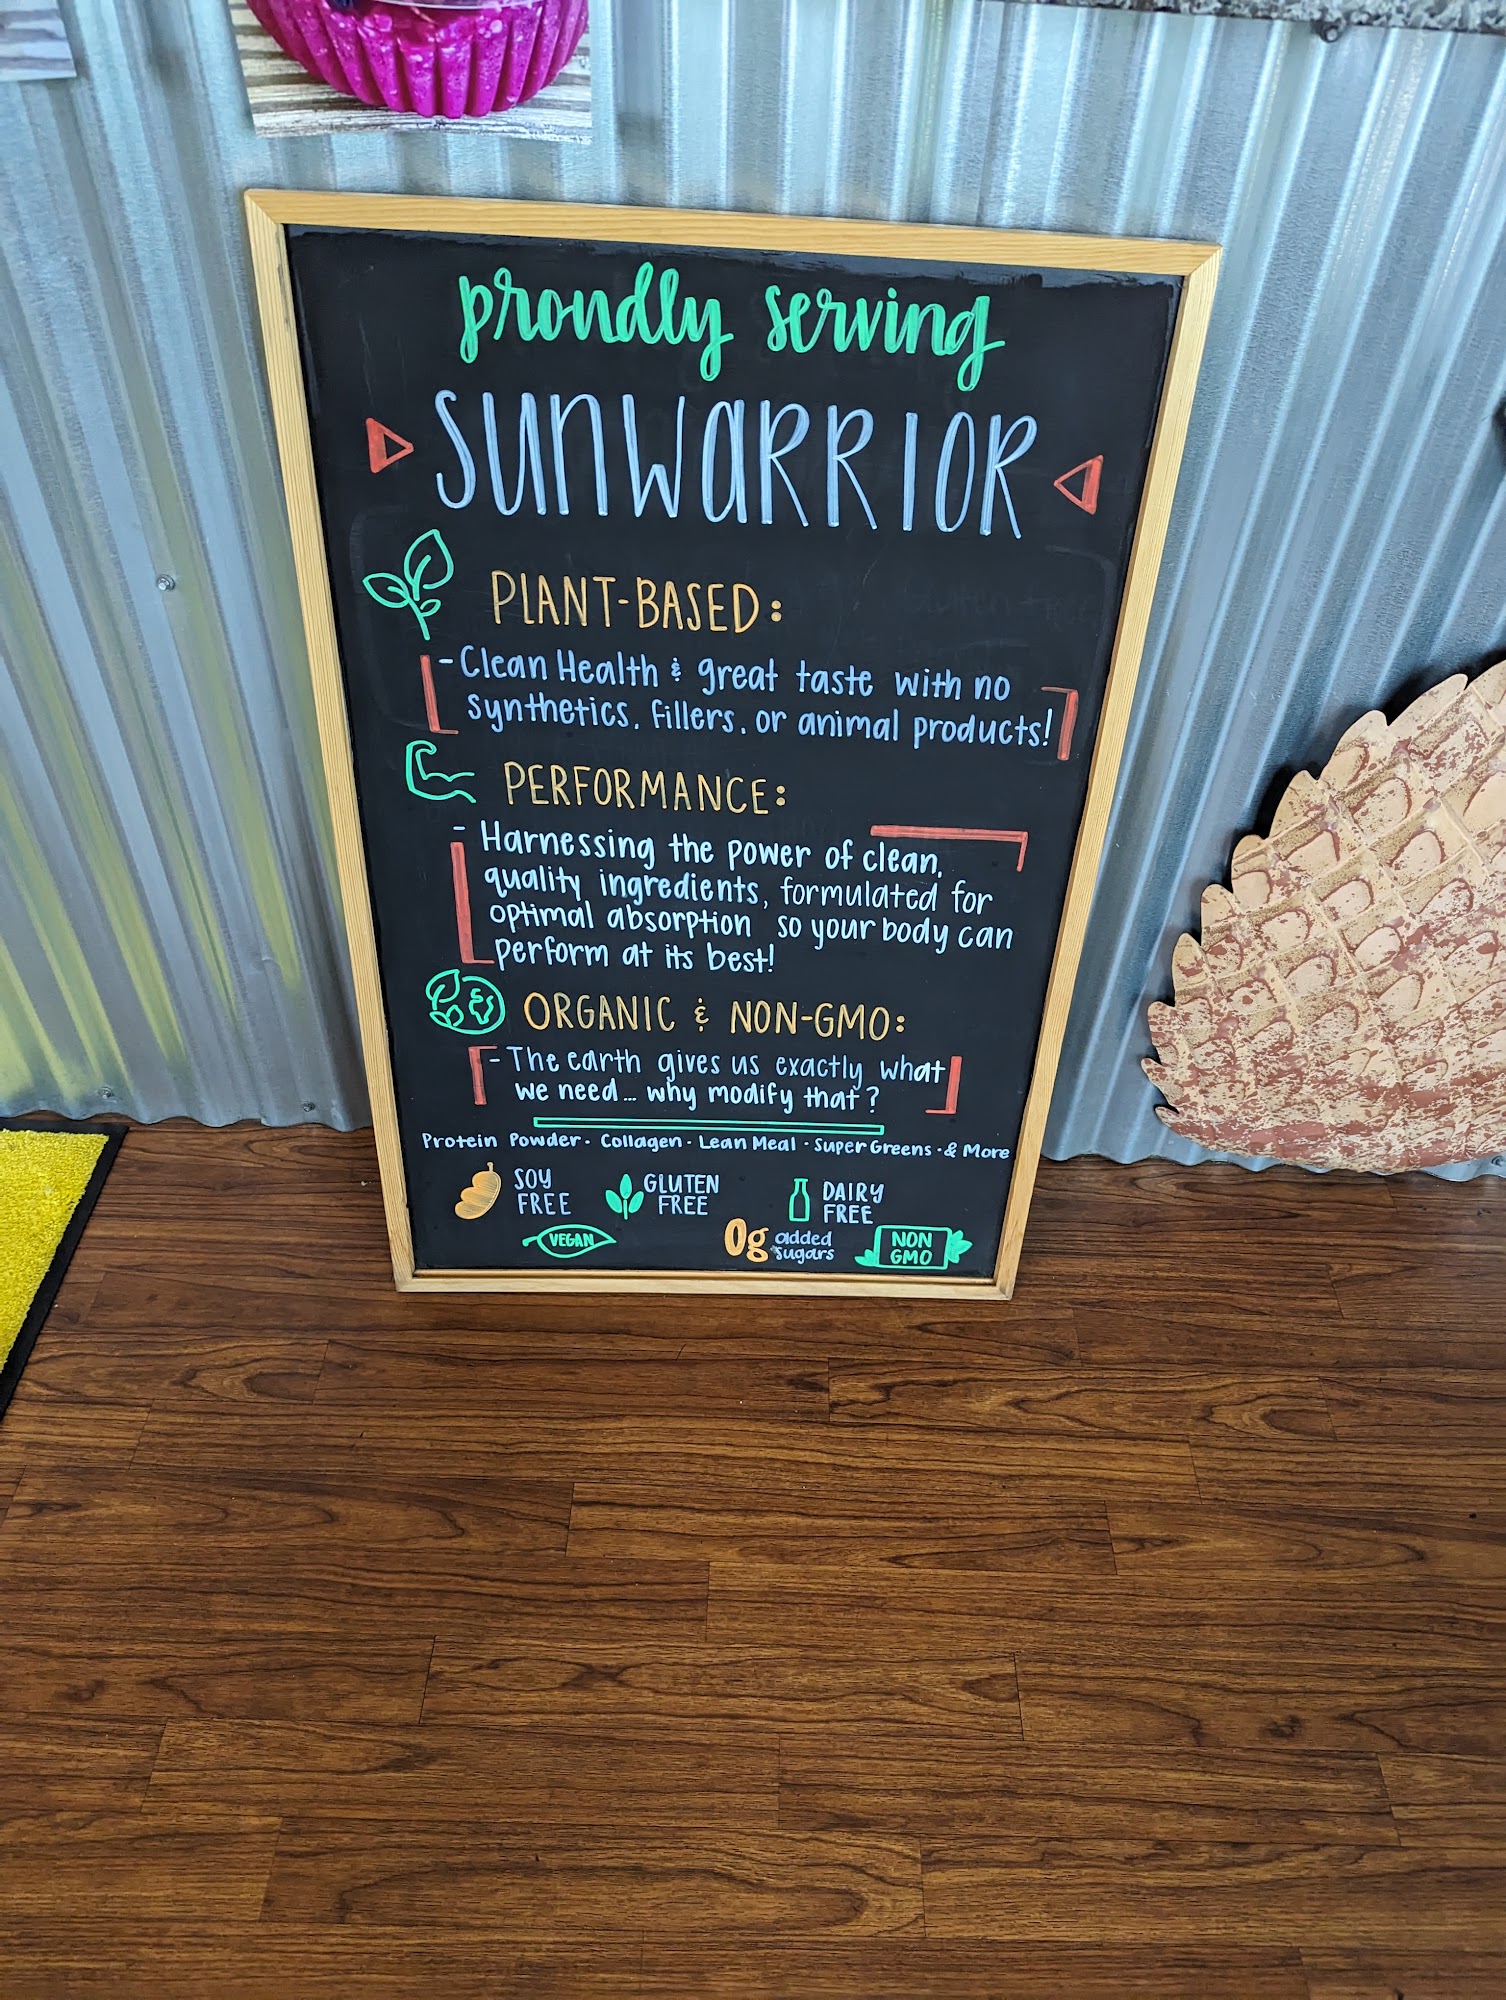 proudly serving
SUNWARRIOR
PLANT-BASED:
- Clean Health & great taste with no
synthetics, fillers, or animal products!
PERFORMANCE:
- Harnessing the power of clean,
quality ingredients, formulated for
optimal absorption so your body can
perform at its best!
ORGANIC & NON-GMO:
- The earth gives us exactly what
we need... why modify that?
Protein Powder · Collagen · Lean Meal · Super Greens · & More
SOY
FREE
GLUTEN
FREE
DAIRY
FREE
VEGAN
0g added
sugars
NON
GMO